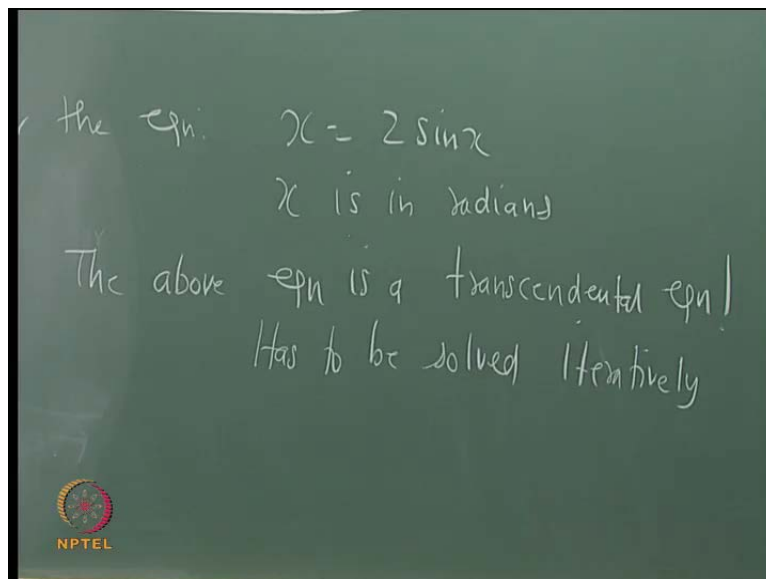 the eqn. x = 2 sinx
x is in radians
The above eqn is a transcendental eqn!
Has to be solved Iteratively
NPTEL